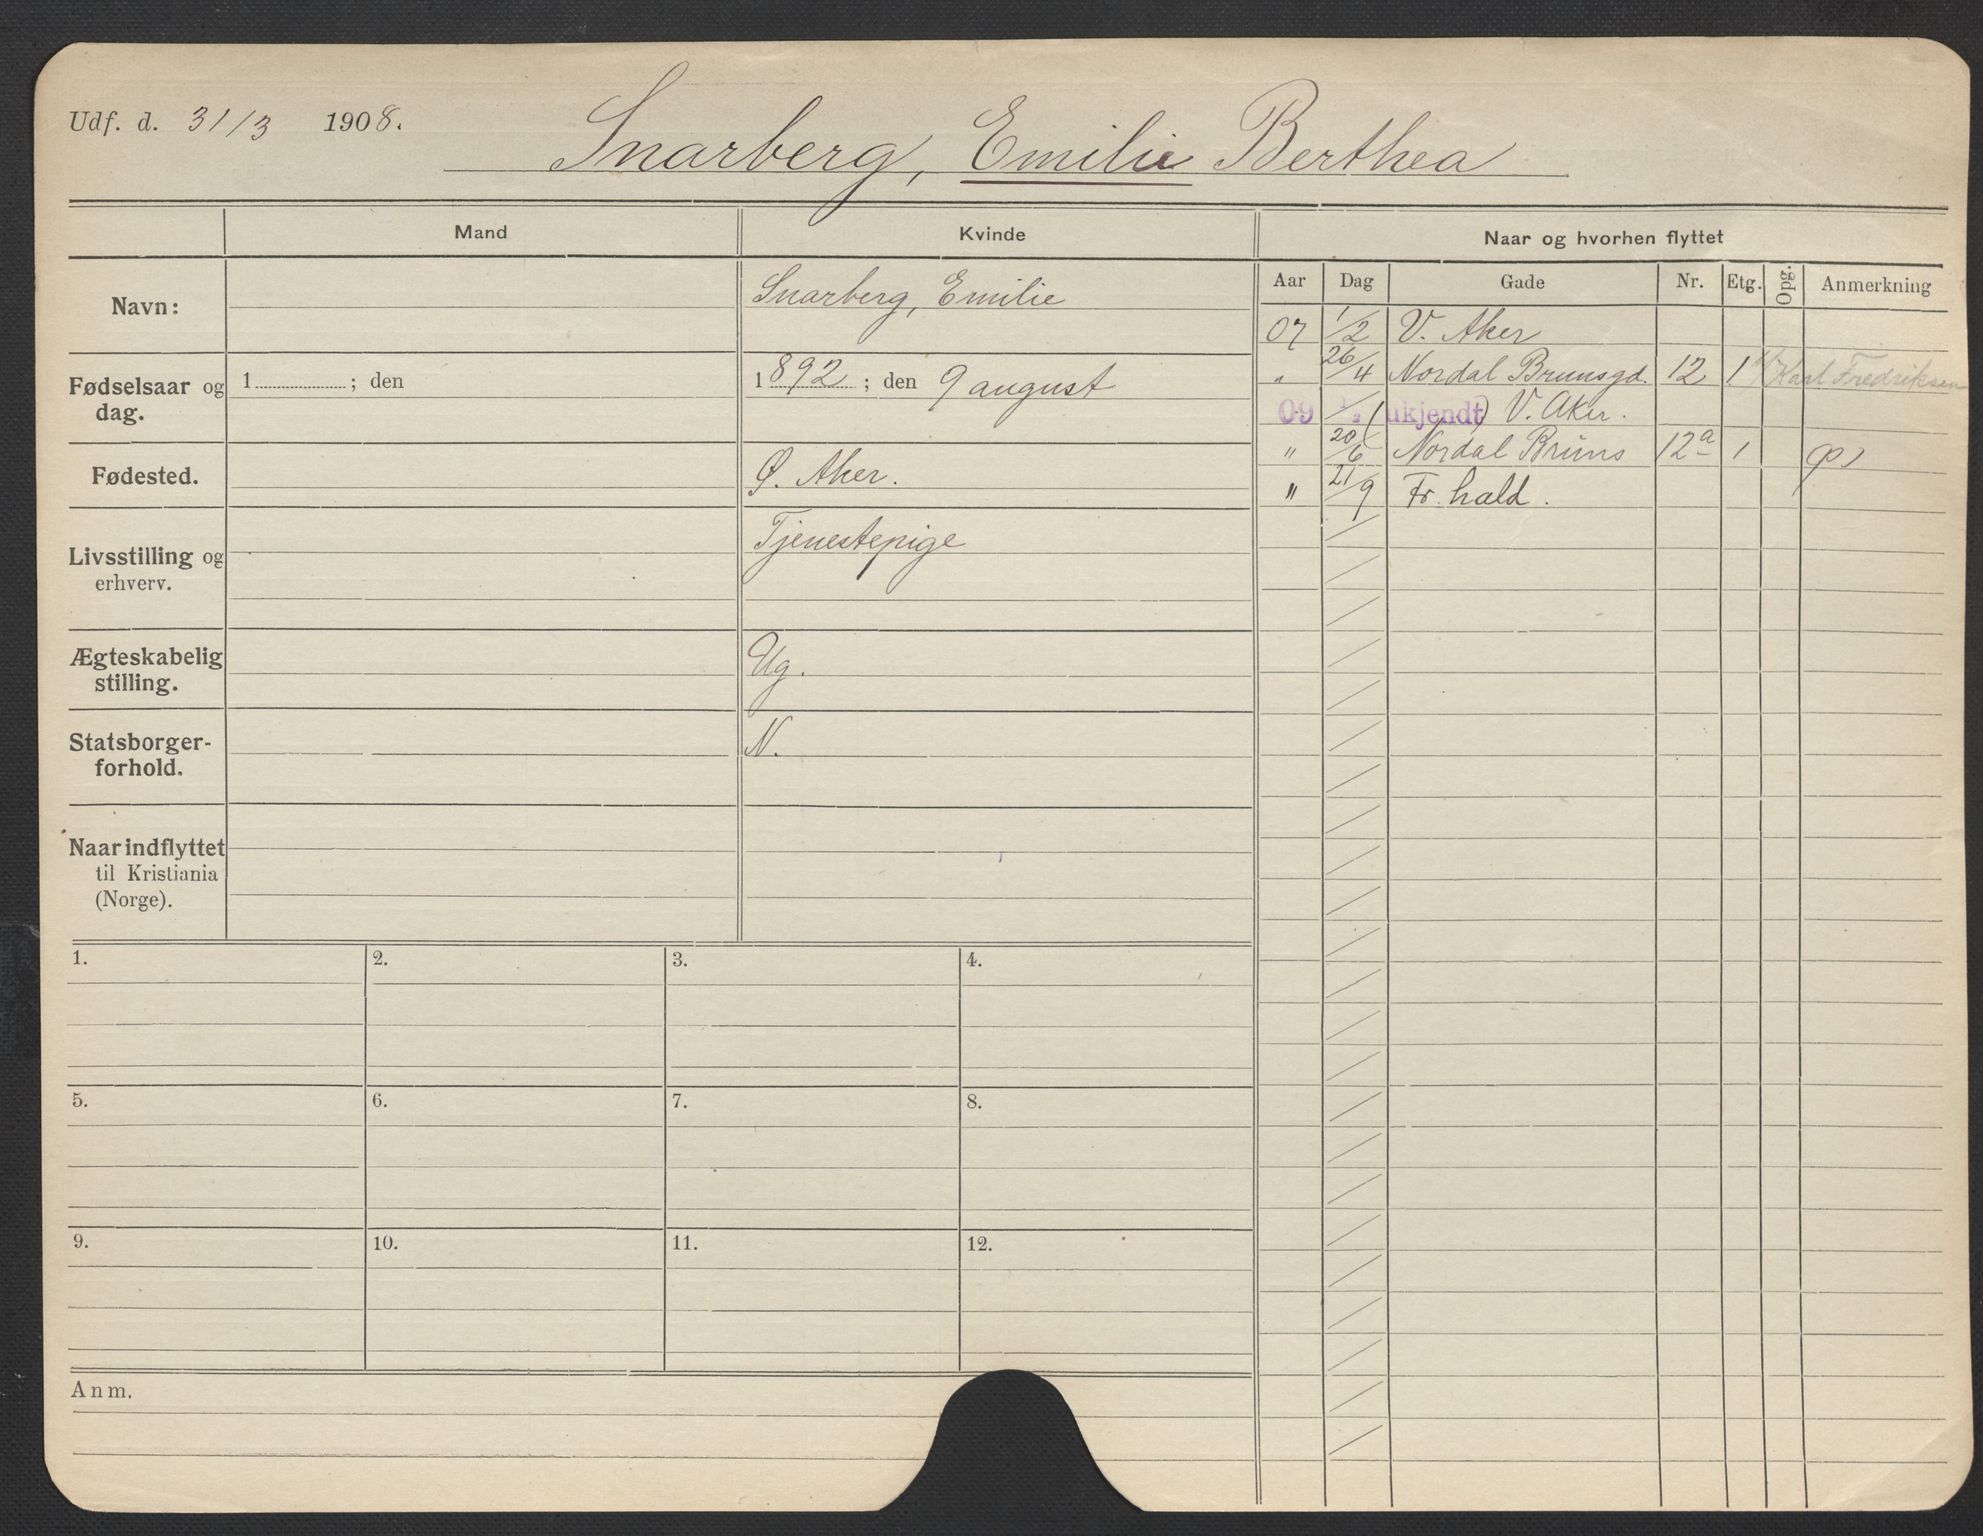 Udf. d. 31/3 1908.
Snarberg, Emilie Berthea
Mand
Kvinde
Naar og hvorhen flyttet
Aar Dag Gade Nr. Etg. Opg. Anmerkning
Navn:
Snarberg, Emilie
Fødselsaar og dag.
1 ; den
1892 ; den 9 august
Fødested.
Ø. Aker.
Livsstilling og erhverv.
Tjenestepige
Ægteskabelig stilling.
Ug.
Statsborgerforhold.
N.
Naar indflyttet til Kristiania (Norge).
07 1/2 V. Aker
" 26/4 Nordal Brunsgd. 12 1 Karl Fredriksen
09 1/2 (ukjendt) V. Aker.
" 20/6 Nordal Bruns 12a 1
" 21/9 Fr.hald.
1. 2. 3. 4.
5. 6. 7. 8.
9. 10. 11. 12.
Anm.